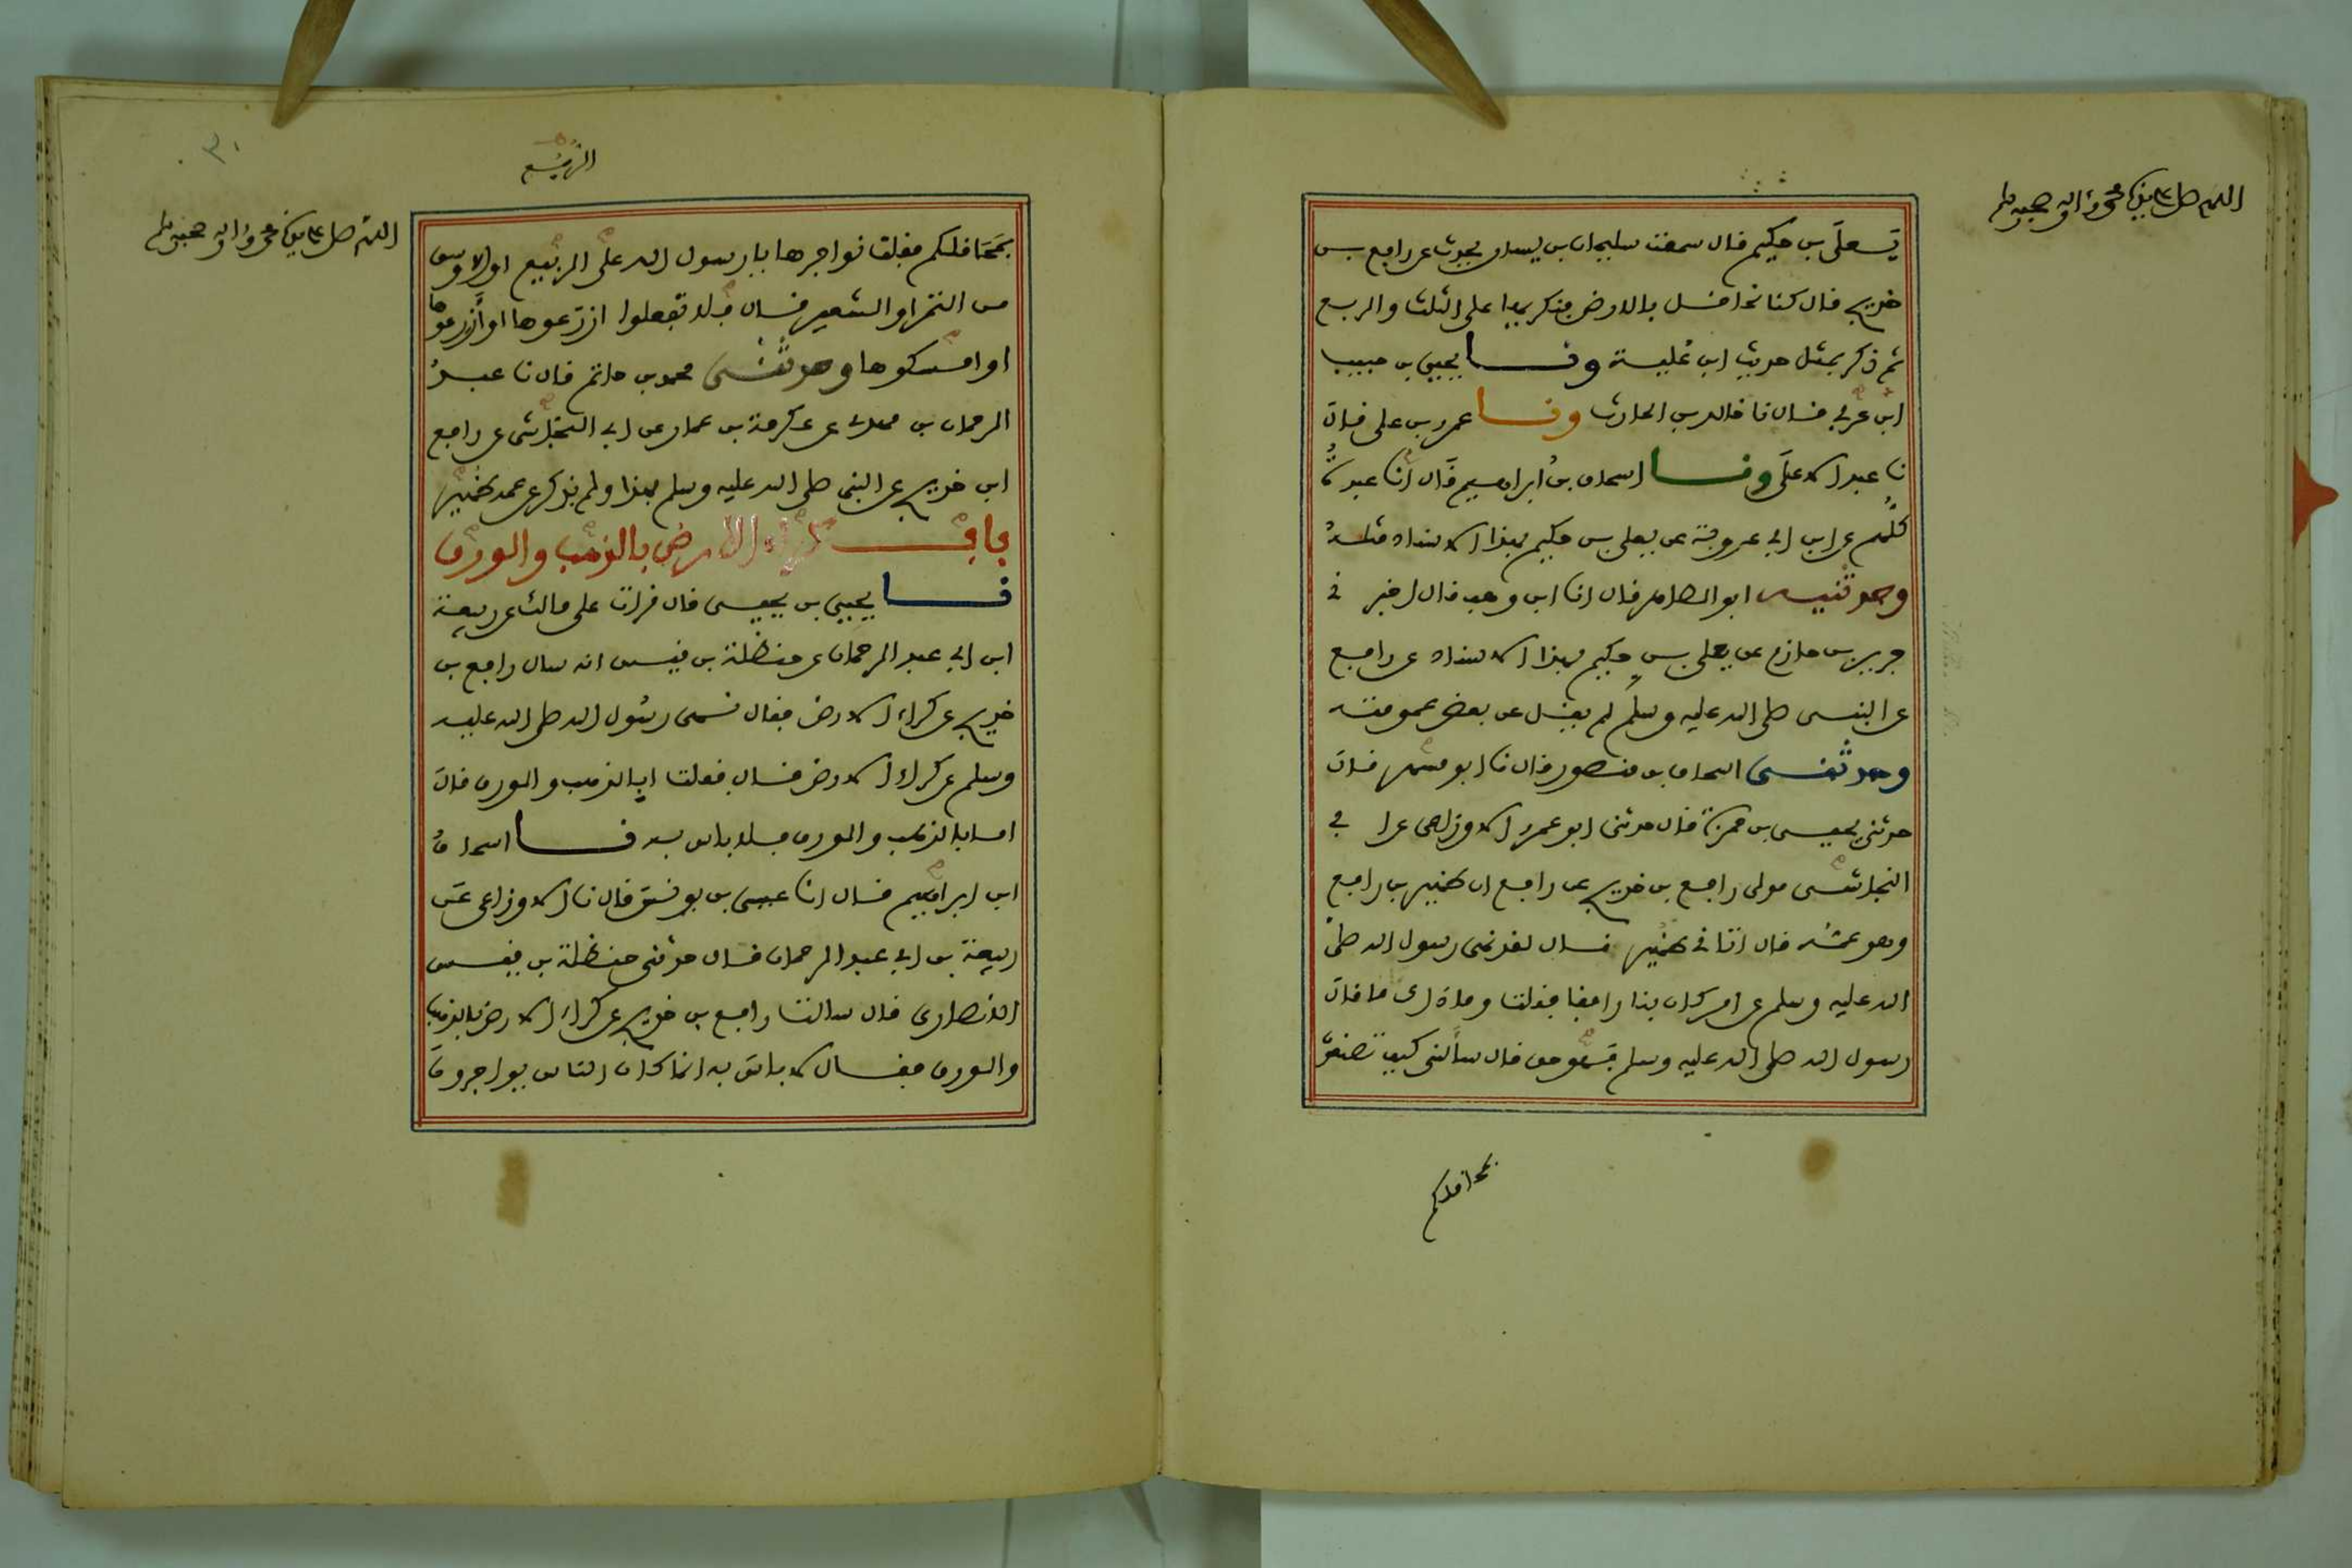 اللهم صل على سيدنا محمد وآله وصحبه وسلم
يعلى بن حكيم قال سمعت سليمان بن يسار يحدث عن رافع بن
خديج قال كنا نحاقل بالارض فنكريها على الثلث والربع
ثم ذكر بمثل حديث ابن علية ونا يحيى بن حبيب
ابن عربي قال نا خالد بن الحارث ونا عمرو بن علي قال
نا عبد الاعلى ونا اسحاق بن ابراهيم قال انا عبدة
كلهم عن ابن ابي عروبة عن يعلى بن حكيم بهذا الاسناد مثله
وحدثنيه ابو الطاهر قال انا ابن وهب قال اخبرني
جرير بن حازم عن يعلى بن حكيم بهذا الاسناد عن رافع
عن النبي صلى الله عليه وسلم لم يقل عن بعض عمومته
وحدثني اسحاق بن منصور قال نا ابو مسهر قال
حدثني يحيى بن حمزة قال حدثني ابو عمرو الاوزاعي عن ابي
النجاشي مولى رافع بن خديج عن رافع ان ظهير بن رافع
وهو عمه قال اتاني ظهير فقال لقد نهى رسول الله صلى
الله عليه وسلم عن امر كان بنا رافقا فقلت وما ذاك ما قال
رسول الله صلى الله عليه وسلم فهو حق قال سألني كيف تصنعون
بمحاقلكم
الربيع
٣٠
اللهم صل على سيدنا محمد وآله وصحبه وسلم
بمحاقلكم فقلت نواجرها يا رسول الله على الربيع او الاوسق
من التمر او الشعير قال فلا تفعلوا ازرعوها او أزرعوها
او امسكوها وحدثني محمد بن حاتم قال نا عبد
الرحمان بن مهدي عن عكرمة بن عمار عن ابي النجاشي عن رافع
ابن خديج عن النبي صلى الله عليه وسلم بهذا ولم يذكر عن عمه ظهير
باب كراء الارض بالذهب والورق
نا يحيى بن يحيى قال قرات على مالك عن ربيعة
ابن ابي عبد الرحمان عن حنظلة بن قيس انه سال رافع بن
خديج عن كراء الارض فقال نهى رسول الله صلى الله عليه
وسلم عن كراء الارض قال فقلت ابالذهب والورق قال
اما بالذهب والورق فلا باس به نا اسحاق
ابن ابراهيم قال انا عيسى بن يونس قال نا الاوزاعي عن
ربيعة بن ابي عبد الرحمان قال حدثني حنظلة بن قيس
الانصاري قال سالت رافع بن خديج عن كراء الارض بالذهب
والورق فقال لا باس به انما كان الناس يواجرون